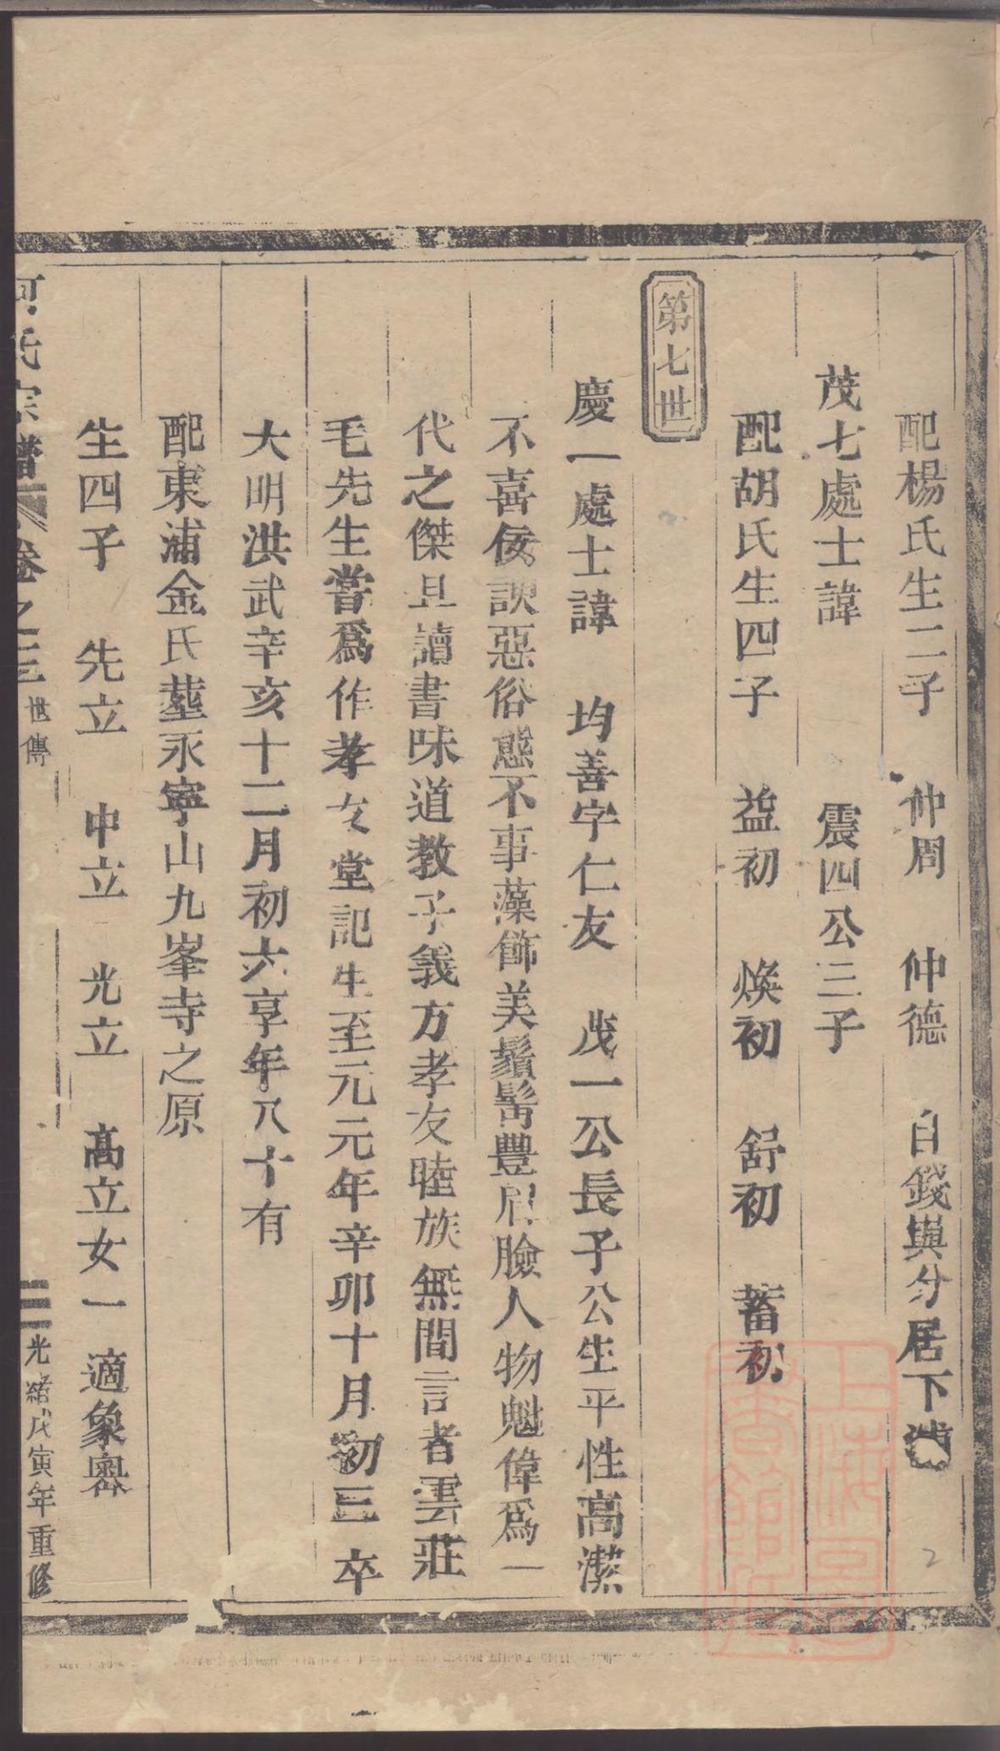 配楊氏生二子　仲周　仲德　自錢與分居下浦
茂七處士諱　震四公三子
配胡氏生四子　益初　煥初　舒初　蓄初
第七世
慶一處士諱　均善字仁友　茂一公長子公生平性高潔
不喜佞諛惡俗態不事藻飾美鬚髯豐眉臉人物魁偉爲一
代之傑且讀書味道教子義方孝友睦族無間言者雲莊
毛先生嘗爲作孝友堂記生至元元年辛卯十月初三卒
大明洪武辛亥十二月初六享年八十有
配東浦金氏塟永寧山九峯寺之原
生四子　先立　中立　光立　高立女一適象嶴
何氏宗譜　卷之三　世傳　三　光緒戊寅年重修
上海圖書館藏
2